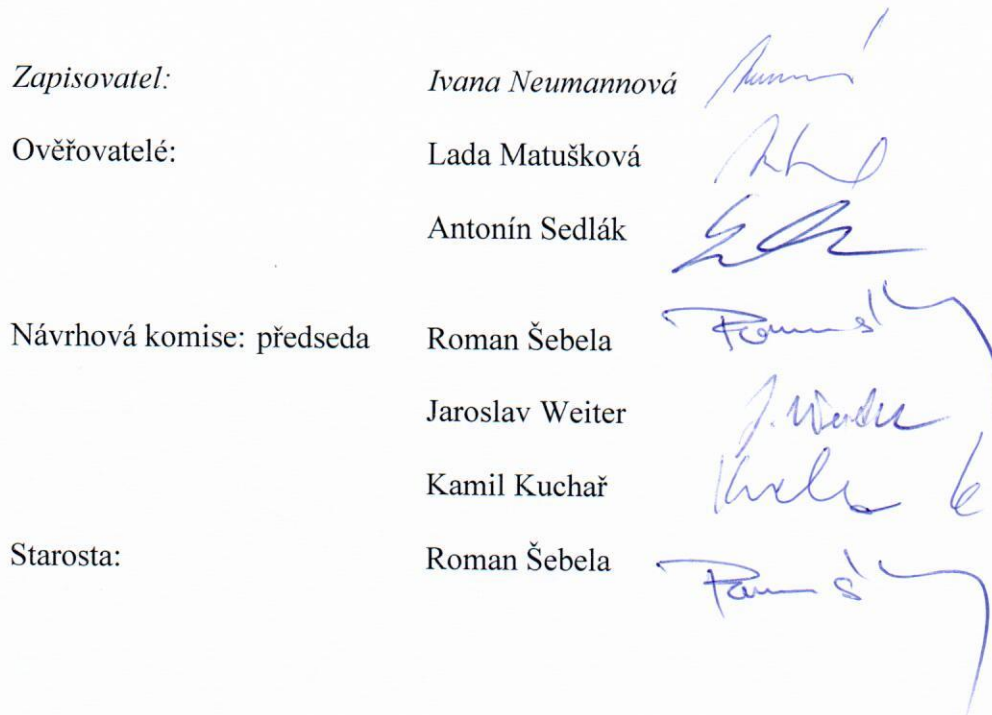 Zapisovatel: Ivana Neumannová
Ověřovatelé: Lada Matušková
Antonín Sedlák
Návrhová komise: předseda Roman Šebela
Jaroslav Weiter
Kamil Kuchař
Starosta: Roman Šebela